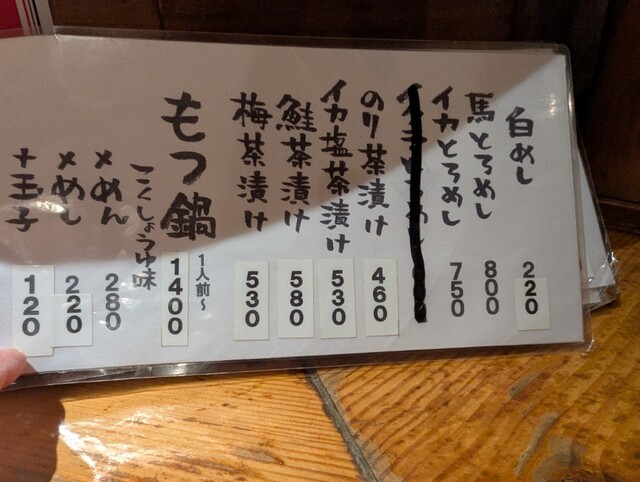 白めし 220
馬とろめし 800
イカとろめし 750
のり茶漬け 460
イカ塩茶漬け 530
鮭茶漬け 580
梅茶漬け 530
もつ鍋 1人前~ 1400
こくしょうゆ味
〆めん 280
〆めし 220
+玉子 120